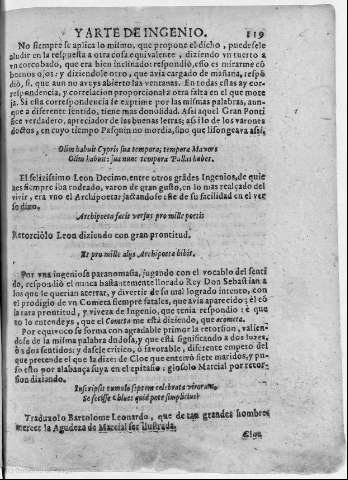 Y ARTE DE INGENIO. 119
No siempre se aplica lo mismo, que propone el dicho, puedesele
aludir en la respuesta a otra cosa equivalente, diziendo vn tuerto a
vn corcobado, que era bien inclinado: respondiò, esso es mirarme cō
buenos ojos: y diziendole otro, que avia cargado de mañana, respō
diò, si, que aun no aveys abierto las ventanas. En todas estas ay cor-
respondencia, y correlacion proporcionata otra falta en el que mote
ja. Si esta correspondencia se exprime por las mismas palabras, aun-
que a diferente sentido, tiene mas donosidad. Assi aquel Gran Ponti
fice verdadero, apreciador de las buenas letras; assilo de los varones
doctos, en cuyo tiempo Pasquin no mordia, sino que lisongeava assi,
Olim habuit Cypris sua tempora; tempora Mavors
Olim habuit: sua nunc tempora Pallas habet.
El felizissimo Leon Decimo, entre otros grādes Ingenios, de quie
nes siempre iba rodeado, varon de gran gusto, en lo mas realçado del
vivir, era vno el Archipoeta: jactandose este de su facilidad en el ver
so dixo.
Archipoeta facit versus pro mille poetis
Retorciòlo Leon diziendo con gran prontitud.
Et pro mille alijs Archipoeta bibit.
Por vna ingeniosa paranomasia, jugando con el vocablo del senti
do, respondiò el nunca bastantemente llorado Rey Don Sebastian a
los que le querian aterrar, y divertir de su mal logrado intento, con
el prodigio de vn Cometa siempre fatales, que avia aparecido; èl cō
la rara prontitud, y viveza de Ingenio, que tenia respondio: è que
no lo entendeys, que el Cometa me està diziendo, que acometa.
Por equivoco se forma con agradable primor la retorsion, valien-
dose de la misma palabra dudosa, y que està significando a dos luzes,
ò a dos sentidos; y dasele critico, ò favorable, diferente empeño del
que pretende el que la dize: de Cloe que enterrò siete maridos, y pu-
so esto por alabança suya en el epitafio: glosolo Marcial por retor-
sion diziendo.
Inscripsit tumulo septem celebrata virorum,
Se fecisse Chloes quid pote simplicius?
Traduxolo Bartolome Leonardo, que de tan grandes hombres
merece la Agudeza de Marcial ser ilustrada.